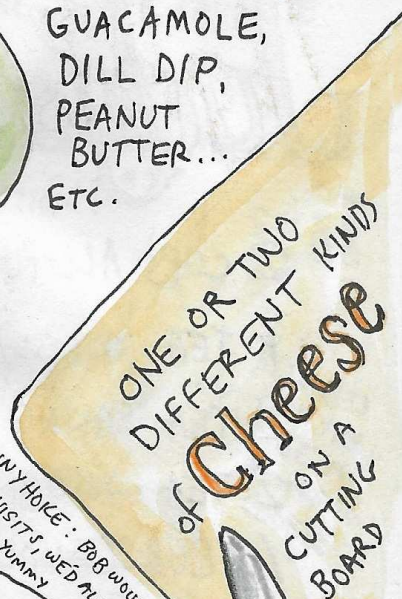 GUACAMOLE,
DILL DIP,
PEANUT
BUTTER...
ETC.
ONE OR TWO
DIFFERENT KINDS
of Cheese
ON A
CUTTING
BOARD
NYHOKE: BOB WOU
VISITS, WE'D AL
YUMMY